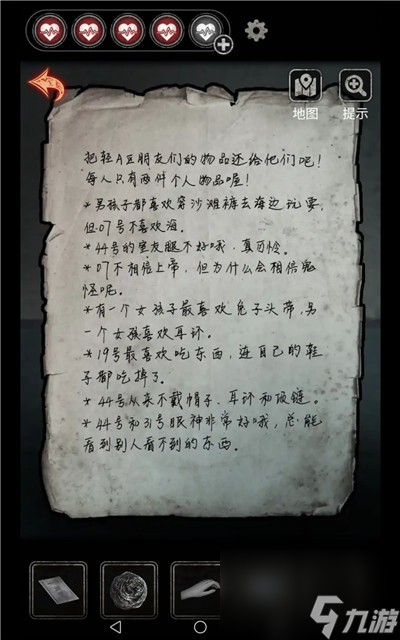 地图
提示
把轻A区朋友们的物品还给他们吧!
每人只有两件个人物品喔!
*男孩子都喜欢穿沙滩裤去海边玩耍,
但07号不喜欢海。
*44号的室友腿不好哦,真可怜。
*07不相信上帝,但为什么会相信鬼
怪呢。
*有一个女孩子最喜欢兔子头带,另
一个女孩喜欢耳环。
*19号最喜欢吃东西,连自己的鞋
子都吃掉了。
*44号从来不戴帽子、耳环和项链。
*44号和31号眼神非常好哦,总能
看到别人看不到的东西。
九游